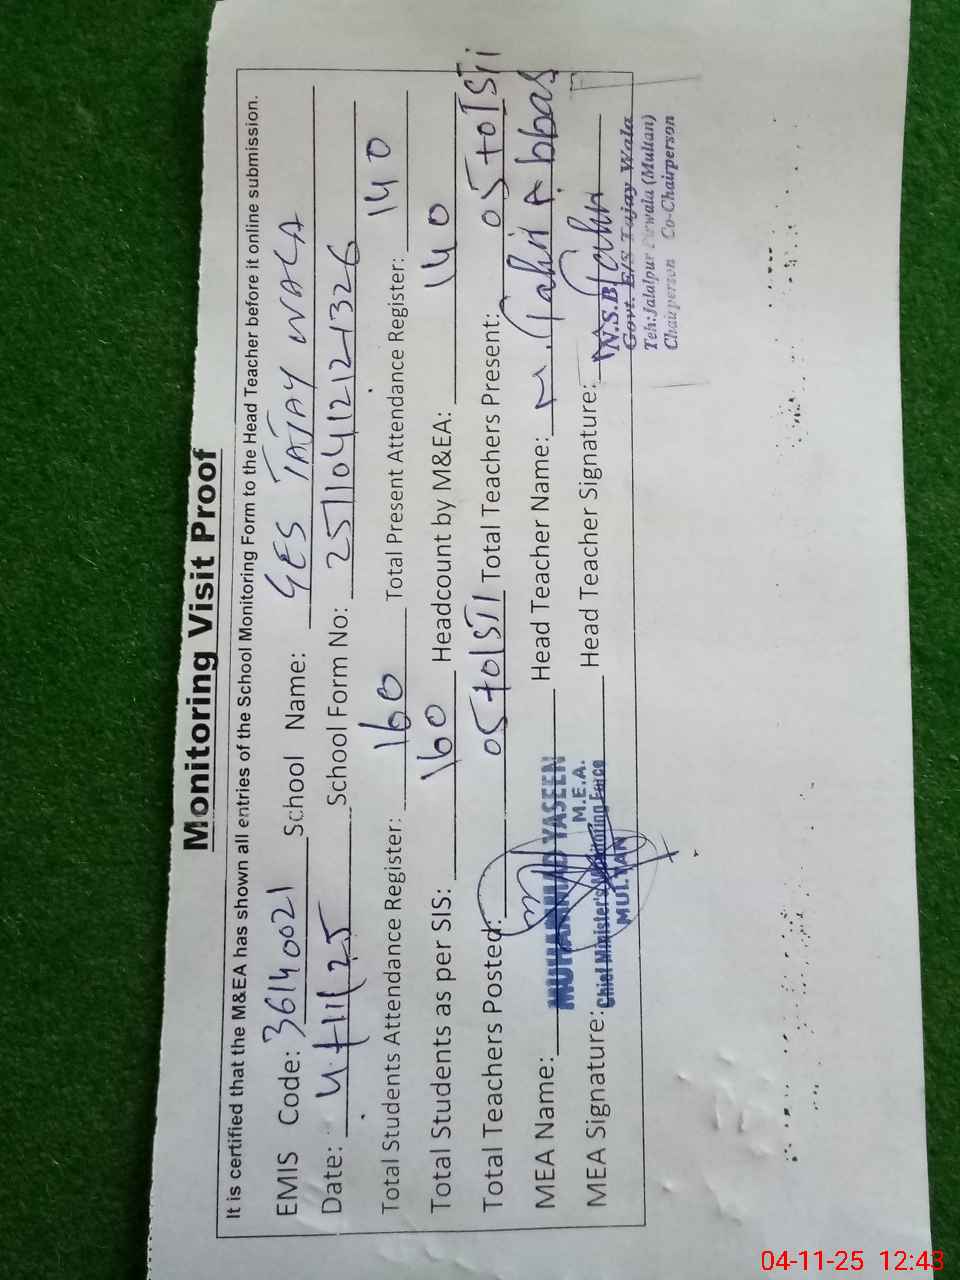 Monitoring Visit Proof
It is certified that the M&EA has shown all entries of the School Monitoring Form to the Head Teacher before it online submission.
EMIS Code: 36140021 School Name: GES TAJAY WALA
Date: 4/11/25 School Form No: 25110412121326
Total Students Attendance Register: 160 Total Present Attendance Register: 140
Total Students as per SIS: 160 Headcount by M&EA: 140
Total Teachers Posted: 05+01STI Total Teachers Present: 05+01STI
MEA Name: MUHAMMAD YASEEN Head Teacher Name: M. Tahir Abbas
M.E.A.
MEA Signature: Chief Minister's Monitoring Force Head Teacher Signature: Tahir
MULTAN
N.S.B
Govt. E/S Tajay Wala
Teh: Jalalpur Pirwala (Multan)
Chairperson Co-Chairperson
04-11-25 12:43